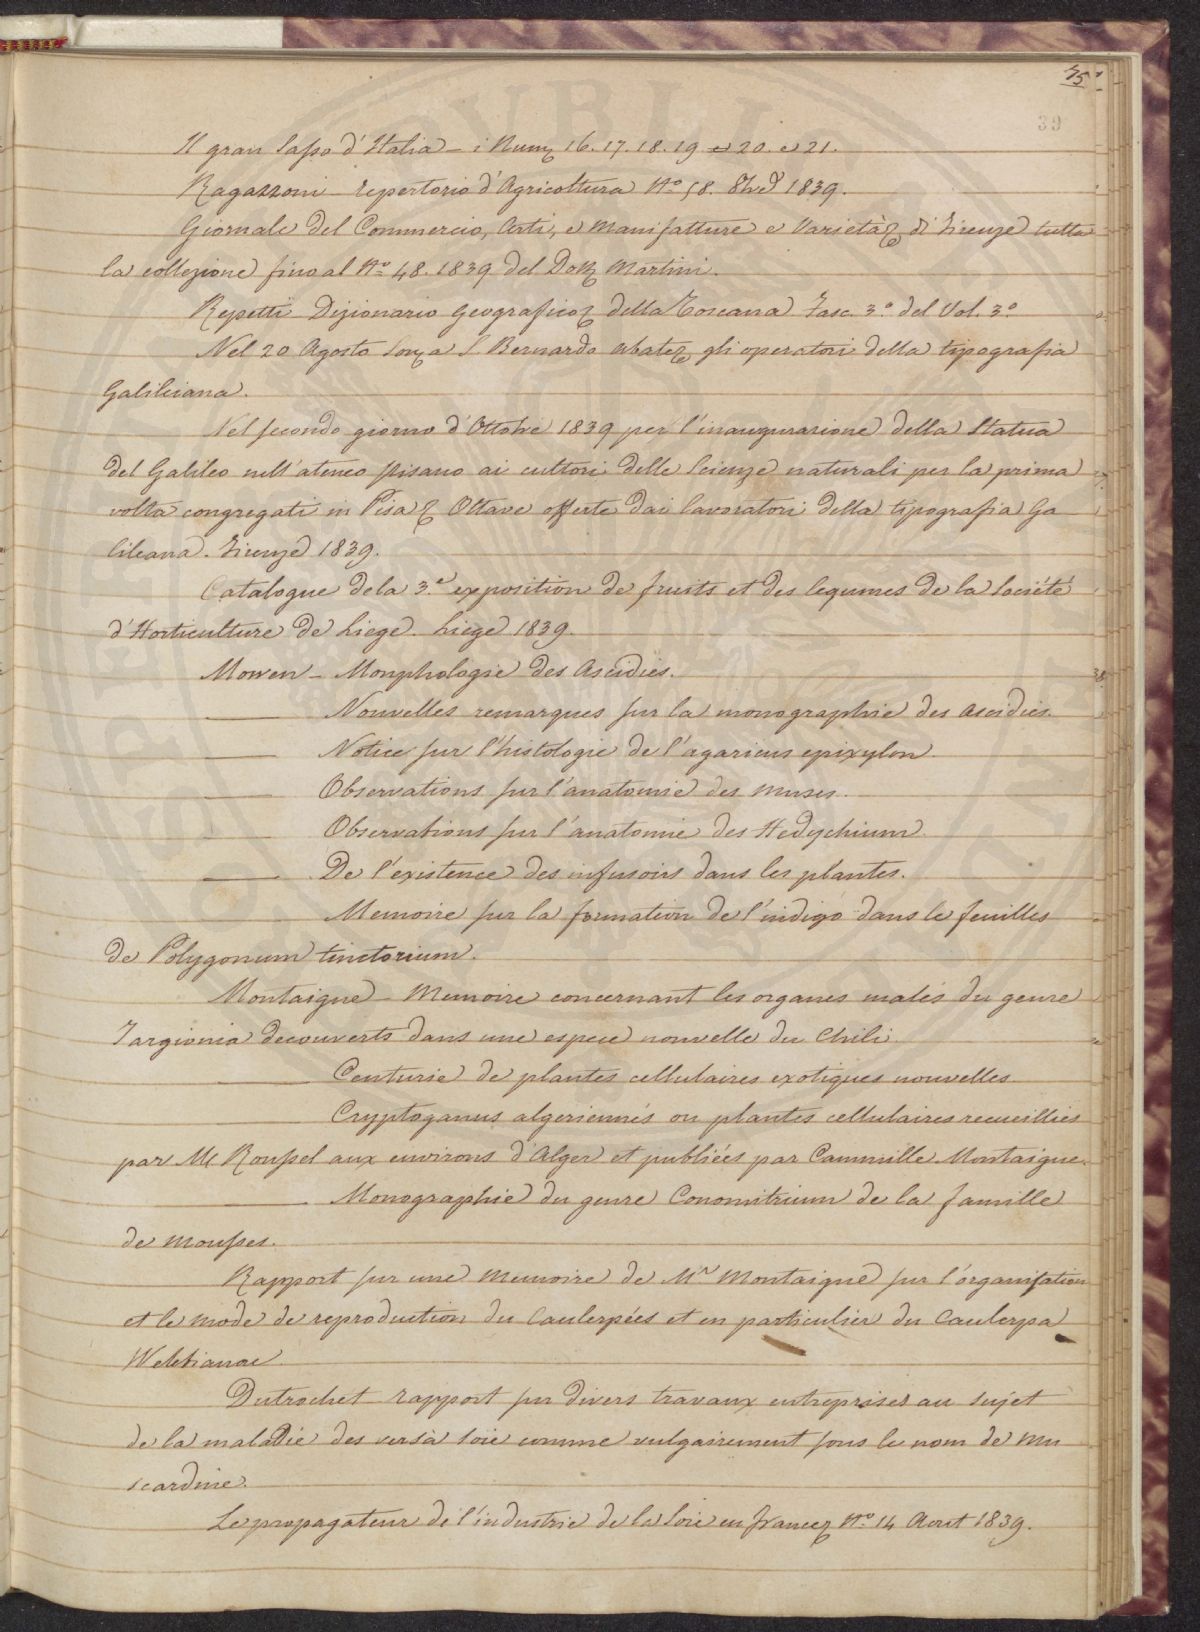 75
39
Il gran Sasso d'Italia - i Num 16. 17. 18. 19 e 20. e 21.
Ragazzoni - repertorio d'Agricoltura No 58. 8bre 1839.
Giornale del Commercio, Arti, e Manifatture e Varietà di Firenze tutta
la collezione fino al No 48. 1839 del Dott Martini.
Repetti - Dizionario Geografico della Toscana Fasc. 3.o del Vol. 3.o
Nel 20 Agosto S. Bernardo Abate gli operatori della tipografia
Galileiana.
Nel secondo giorno d'Ottobre 1839 per l'inaugurazione della Statua
del Galileo nell'ateneo pisano ai cultori delle Scienze naturali per la prima
volta congregati in Pisa Ottave offerte dai lavoratori della tipografia Ga
lileana. Firenze 1839.
Catalogue dela 3.e exposition de fruits et des legumes de la Societé
d'Horticulture de Liege. Liege 1839.
Morren - Morphologie des Ascidies.
Nouvelles remarques sur la monographie des ascidies.
Notice sur l'histologie de l'agaricus epixylon.
Observations sur l'anatomie des Muses.
Observations sur l'anatomie des Hedychium.
De l'existence des infusoirs dans les plantes.
Memoire sur la formation de l'indigo dans le feuilles
de Polygonum tinctorium.
Montaigne - Memoire concernant les organes malés du genre
Targionia decouverts dans une espece nouvelle du Chili.
Centurie de plantes cellulaires exotiques nouvelles.
Cryptogamus algeriennés ou plantes cellulaires recueillies
par Mr Roussel aux environs d'Alger et publiées par Cammille Montaigne.
Monographie du genre Conomitrium de la famille
de mousses.
Rapport sur une Memoire de Mr Montaigne sur l'organisation
et le mode de reproduction du Caulerpées et en particulier du Caulerpa
Webbianae.
Dutrochet - rapport sur divers travaux entreprises au sujet
de la maladie des versà soie comme vulgairement sous le nom de Mu
scardine.
Le propagateur de l'industrie de la Soie en france No 14 Aout 1839.